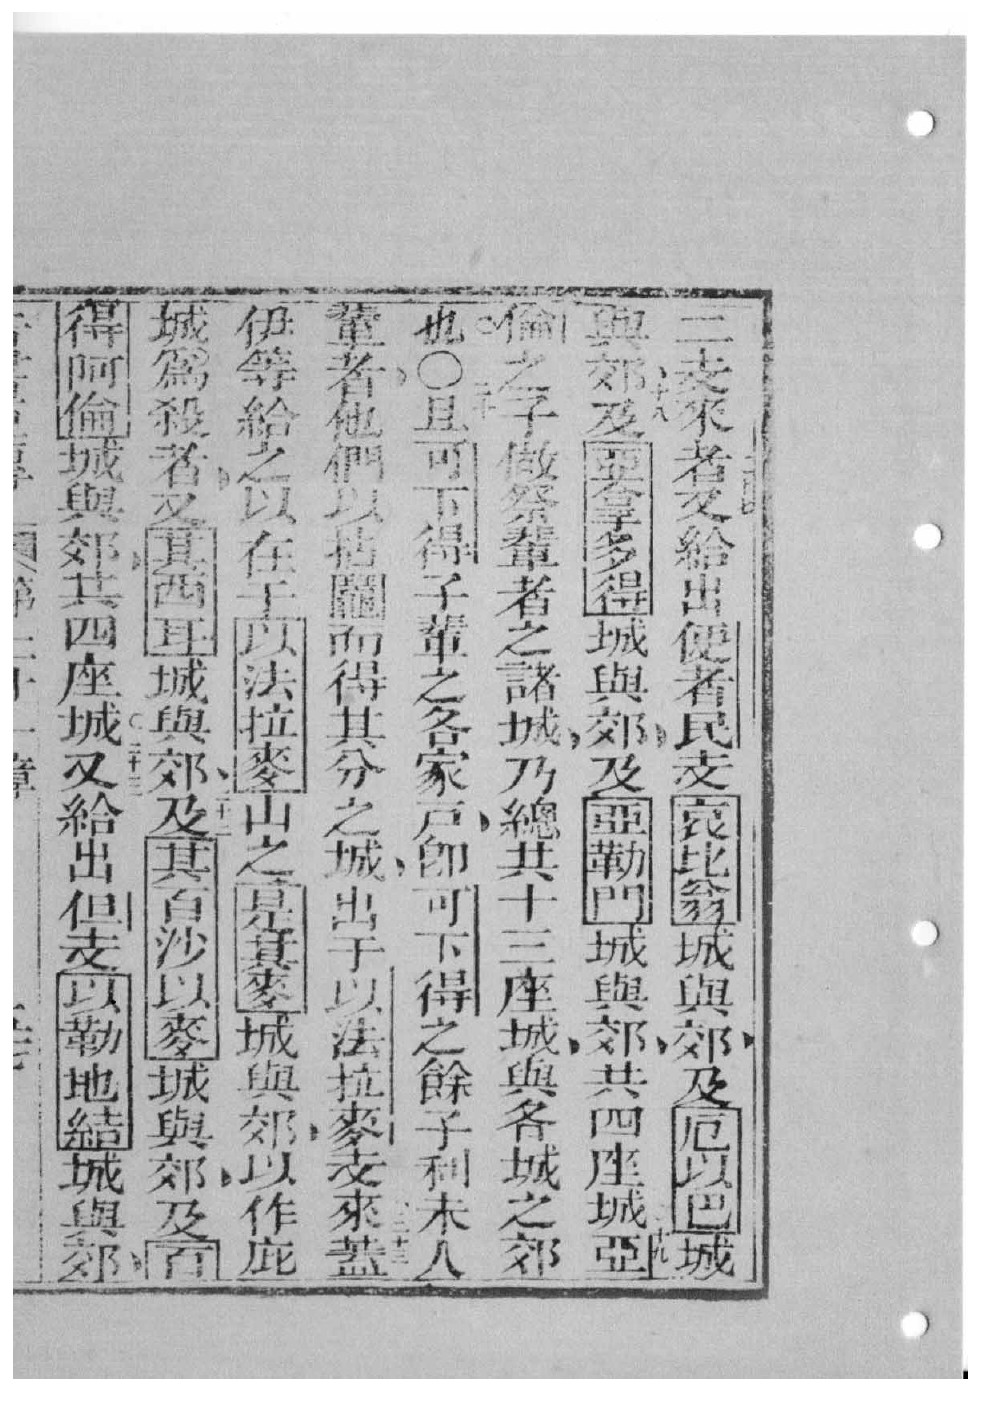 二支來者又給出便者民支哀比翁城與郊及厄以巴城
與郊及亞拿多得城與郊及亞勒門城與郊共四座城亞
倫之子做祭輩者之諸城乃總共十三座城與各城之郊
也〇且可下得子輩之各家戶卽可下得之餘子利未人
輩者他們以拈鬮而得其分之城出于以法拉麥支來蓋
伊等給之以在于以法拉麥山之是其麥城與郊以作庇
城爲殺者又其西耳城與郊及其百沙以麥城與郊及百
得阿倫城與郊共四座城又給出但支以勒地結城與郊